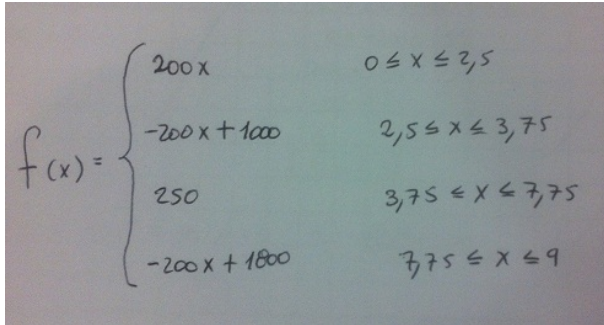 200x 0 ≤ x ≤ 2,5
-200x + 1000 2,5 ≤ x ≤ 3,75
f(x) =
250 3,75 ≤ x ≤ 7,75
-200x + 1800 7,75 ≤ x ≤ 9